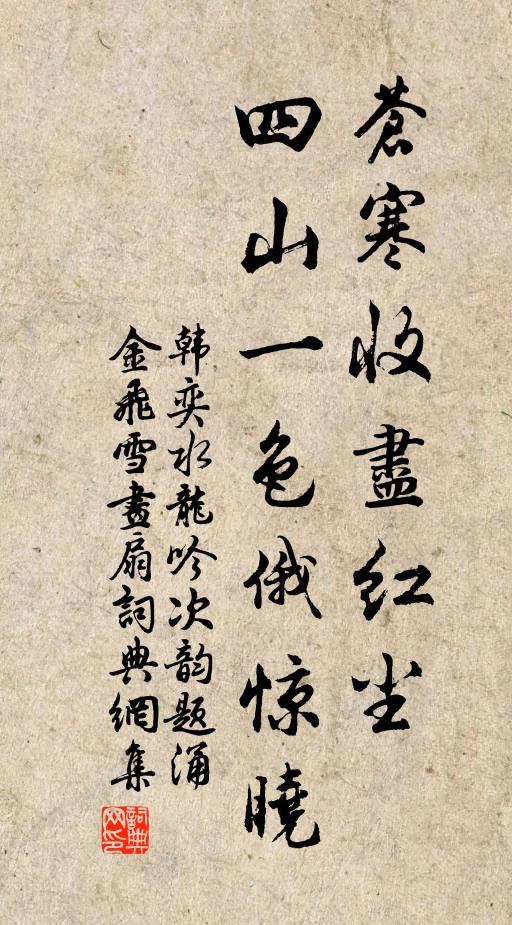 蒼寒收盡红尘
四山一色俄惊曉
韩奕水龍吟次韵题涌
金飛雪畫扇詞典網集
詞典网印